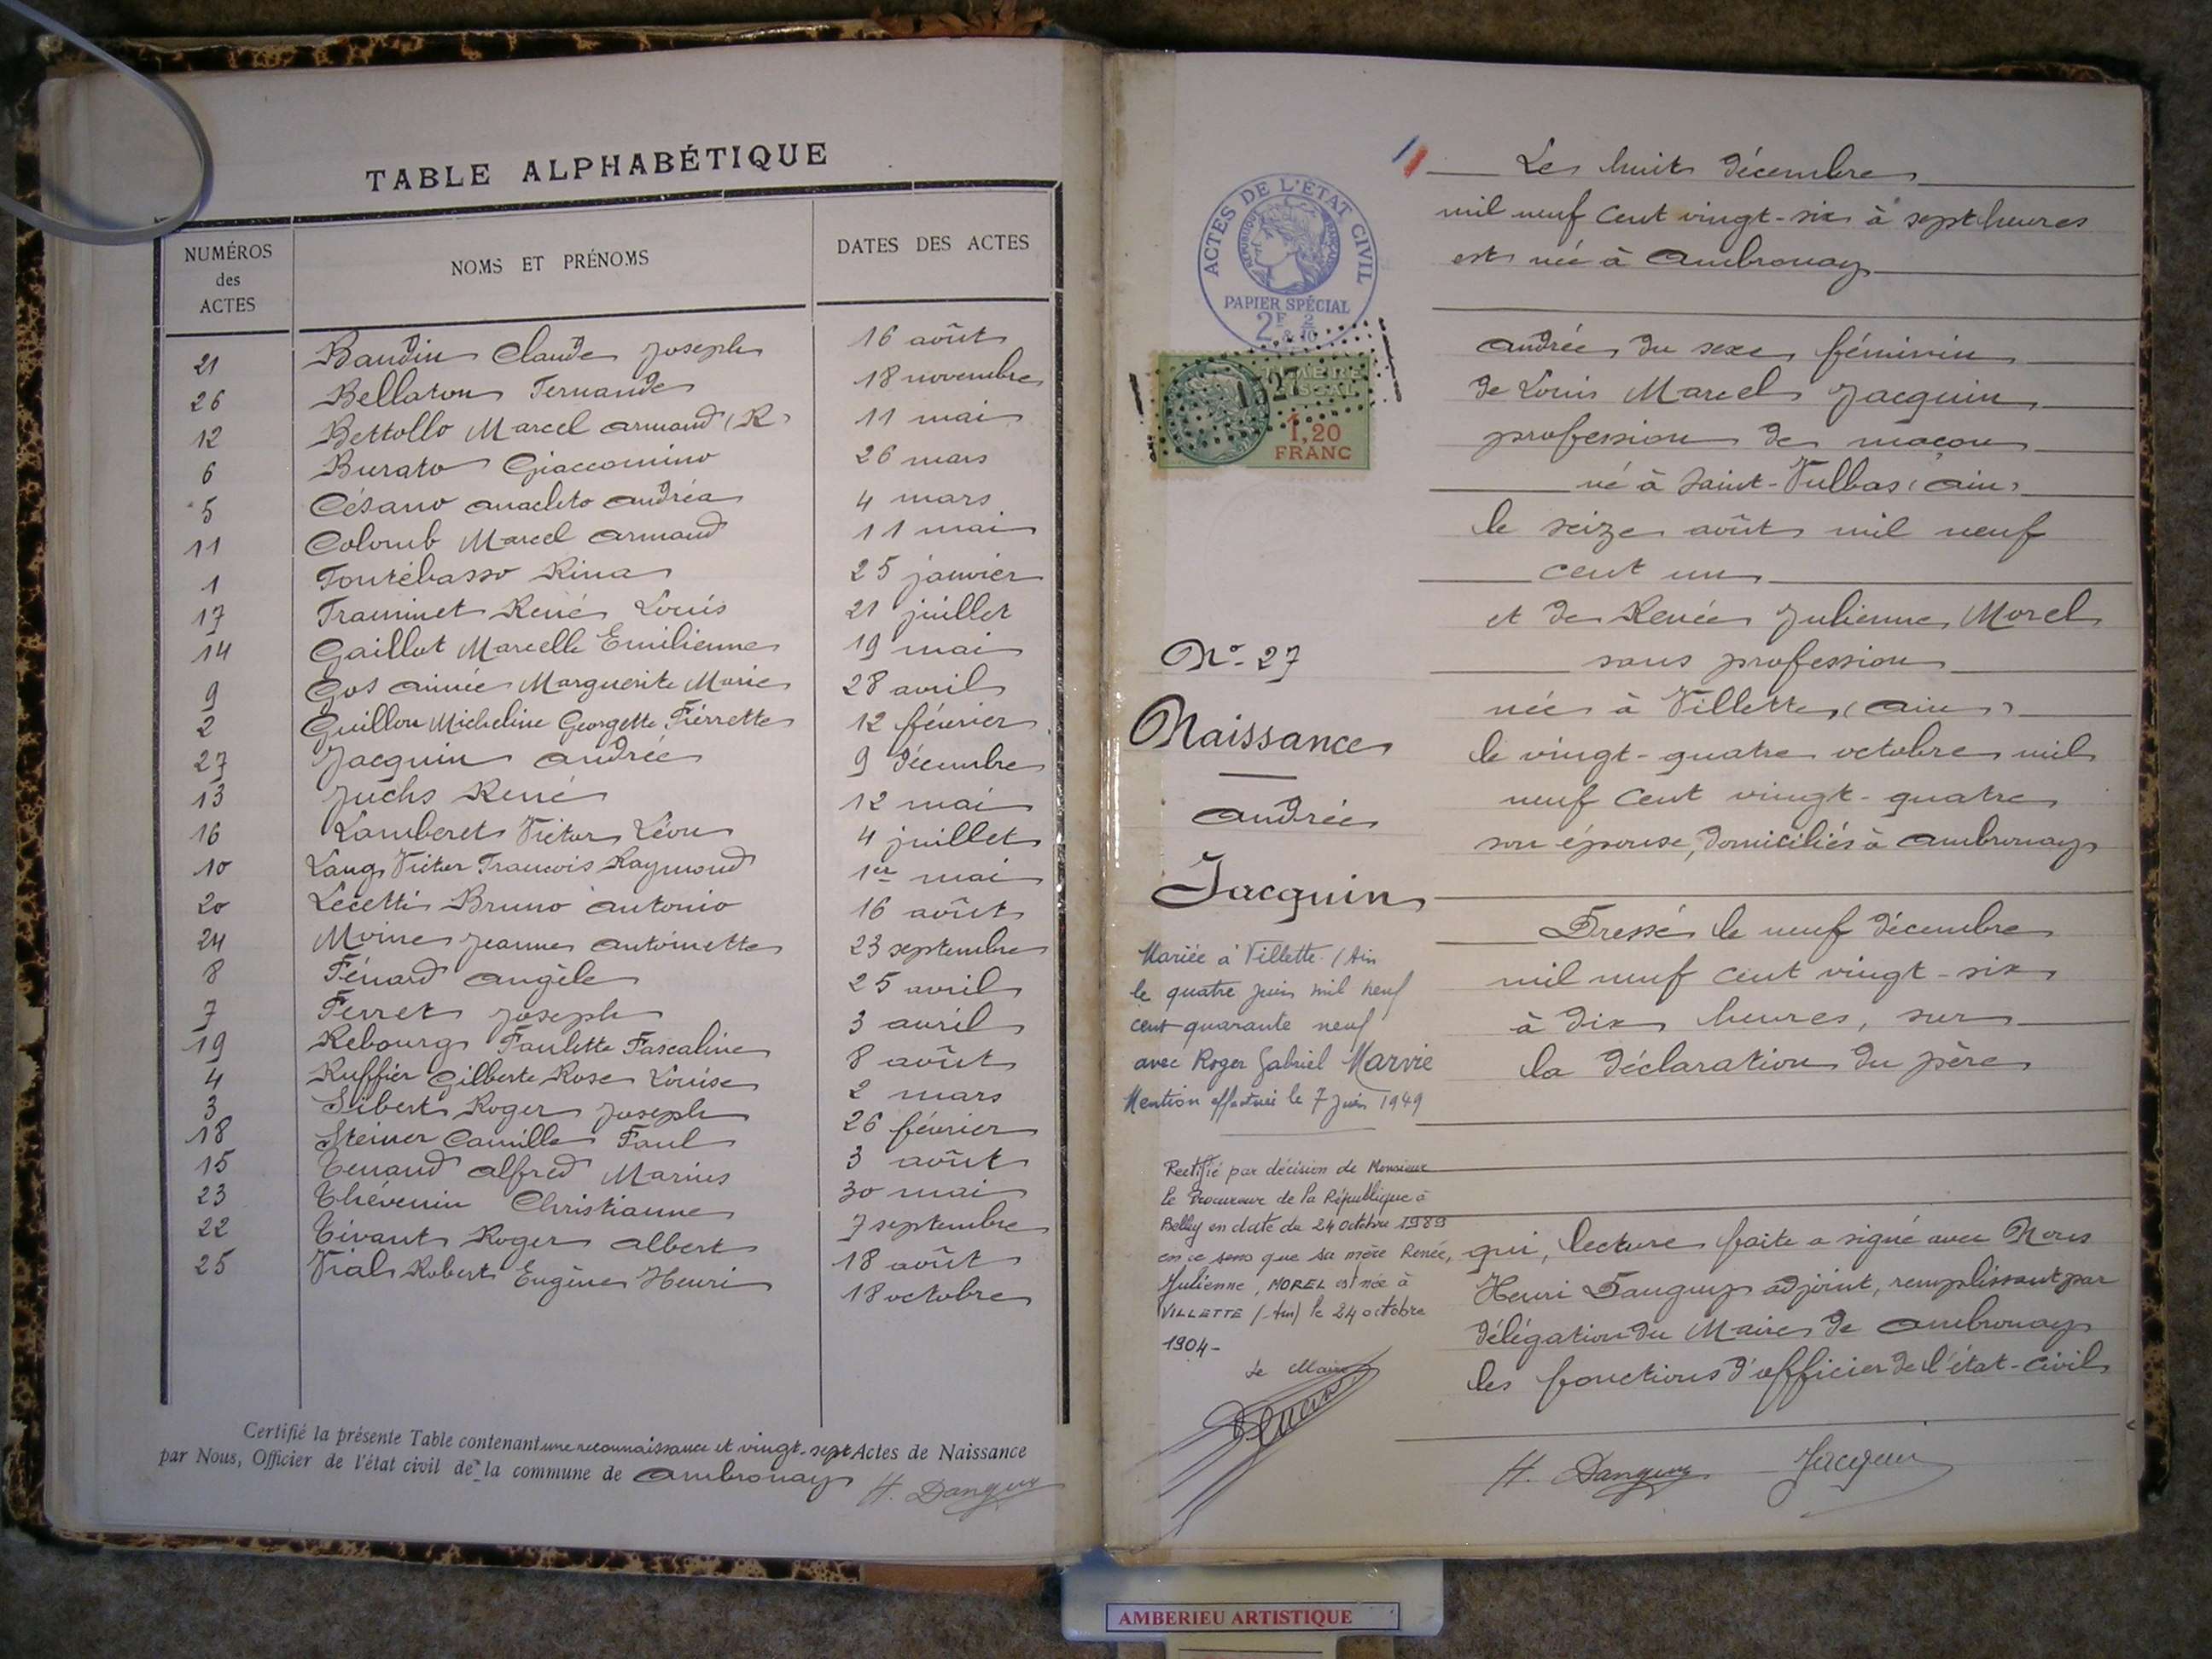 TABLE ALPHABÉTIQUE
NUMÉROS des ACTES
NOMS ET PRÉNOMS
DATES DES ACTES
21 Baudin Claude Joseph 16 août
26 Bellaton Fernande 18 novembre
12 Bettollo Marcel Armand (R) 11 mai
6 Burato Giaccomino 26 mars
5 Césano Anacleto Andréa 4 mars
11 Colomb Marcel Armand 11 mai
1 Fontébasso Rina 25 janvier
17 Framinet René Louis 21 juillet
14 Gaillot Marcelle Emilienne 19 mai
9 Gos Aimée Marguerite Marie 28 avril
2 Guillon Micheline Georgette Pierrette 12 février
27 Jacquin Andrée 9 décembre
13 Juchs René 12 mai
16 Lamberet Victor Léon 4 juillet
10 Lang Victor François Raymond 1er mai
20 Lecetti Bruno Antonio 16 août
24 Moine Jeanne Antoinette 23 septembre
8 Pénard Angèle 25 avril
7 Perret Joseph 3 avril
19 Rebourg Paulette Pascaline 8 août
4 Ruffier Gilberte Rose Louise 2 mars
3 Sibert Roger Joseph 26 février
18 Steiner Camille Paul 3 août
15 Tenand Alfred Marius 30 mai
23 Thévenin Christianne 7 septembre
22 Tivant Roger Albert 18 août
25 Vial Robert Eugène Henri 18 octobre
Certifié la présente Table contenant une reconnaissance et vingt-sept Actes de Naissance
par Nous, Officier de l'état civil de la commune de Ambronay
H. Danguy
ACTES DE L'ETAT CIVIL
REPUBLIQUE FRANÇAISE
PAPIER SPÉCIAL
2F & 2/10
TIMBRE
FISCAL
1,20
FRANC
N° 27
Naissance
Andrée
Jacquin
Mariée à Villette (Ain
le quatre juin mil neuf
cent quarante neuf
avec Roger Gabriel Marvie
Mention effectuée le 7 Juin 1949
Rectifié par décision de Monsieur
le Procureur de la République à
Belley en date du 24 octobre 1989
en ce sens que sa mère Renée,
Julienne, MOREL est née à
VILLETTE (Ain) le 24 octobre
1904-
Le Maire
Le huit décembre
mil neuf cent vingt-six à sept heures
est née à Ambronay
Andrée du sexe féminin
de Louis Marcel Jacquin
profession de maçon
né à Saint-Vulbas (Ain)
le seize août mil neuf
cent un
et de Renée Julienne Morel
sans profession
née à Villette (Ain)
le vingt-quatre octobre mil
neuf cent vingt-quatre
son épouse, domiciliés à Ambronay
Dressé le neuf décembre
mil neuf cent vingt-six
à dix heures, sur
la déclaration du père
qui, lecture faite a signé avec Nous
Henri Danguy adjoint, remplissant par
délégation du Maire de Ambronay
les fonctions d'officier de l'état-civil
H. Danguy Jacquin
AMBERIEU ARTISTIQUE